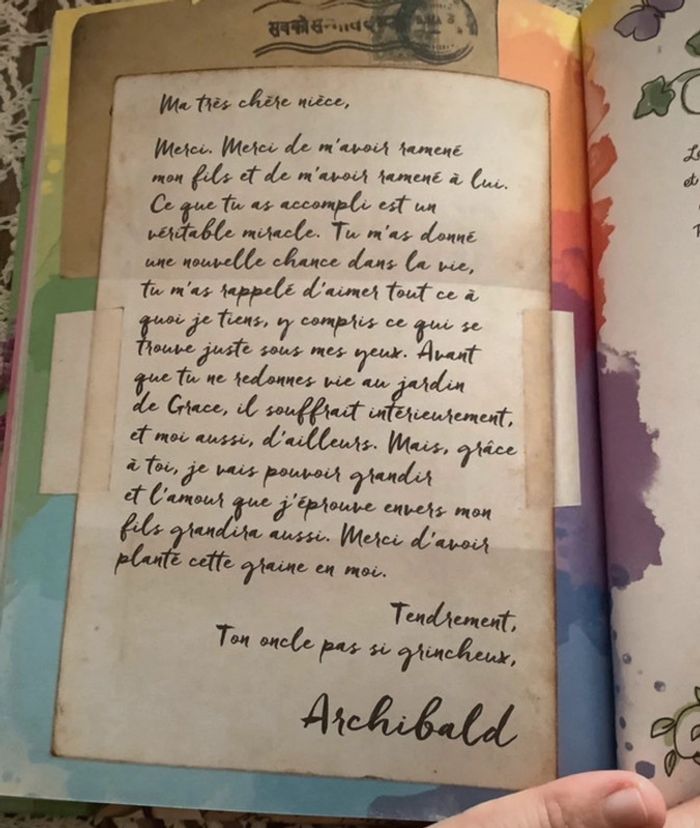 Ma très chère nièce,
Merci. Merci de m'avoir ramené
mon fils et de m'avoir ramené à lui.
Ce que tu as accompli est un
véritable miracle. Tu m'as donné
une nouvelle chance dans la vie,
tu m'as rappelé d'aimer tout ce à
quoi je tiens, y compris ce qui se
trouve juste sous mes yeux. Avant
que tu ne redonnes vie au jardin
de Grace, il souffrait intérieurement,
et moi aussi, d'ailleurs. Mais, grâce
à toi, je vais pouvoir grandir
et l'amour que j'éprouve envers mon
fils grandira aussi. Merci d'avoir
planté cette graine en moi.
Tendrement,
Ton oncle pas si grincheux,
Archibald
et